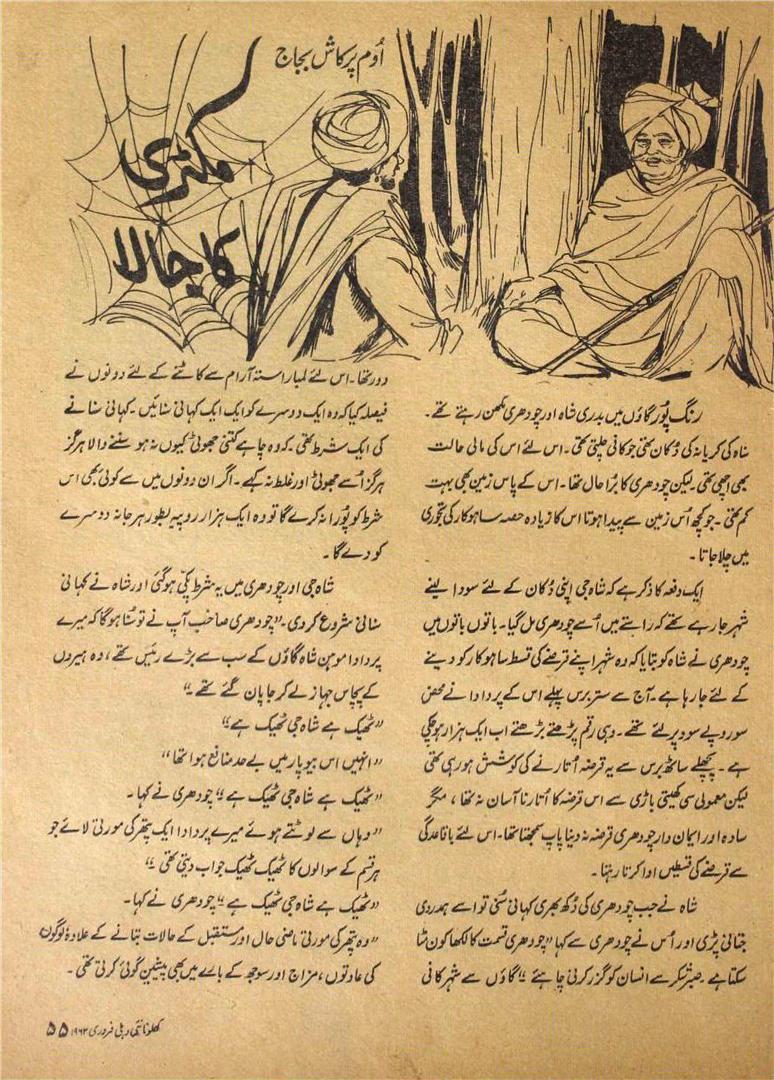 اوم پرکاش بجاج
مکڑی
کا جالا
رنگ پُور گاؤں میں بدری شاہ اور چودھری مکھن رہتے تھے۔
شاہ کی کریانہ کی دُکان تھی جو کافی چلتی تھی۔ اس لئے اس کی مالی حالت
بھی اچھی تھی۔ لیکن چودھری کا بُرا حال تھا۔ اس کے پاس زمین بھی بہت
کم تھی۔ جو کچھ اُس زمین سے پیدا ہوتا اس کا زیادہ حصہ ساہوکار کی تجوری
میں چلا جاتا۔
ایک دفعہ کا ذکر ہے کہ شاہ جی اپنی دُکان کے لئے سودا لینے
شہر جا رہے تھے کہ راستے میں اُسے چودھری مل گیا۔ باتوں باتوں میں
چودھری نے شاہ کو بتایا کہ وہ شہر اپنے قرضے کی قسط ساہوکار کو دینے
کے لئے جا رہا ہے۔ آج سے ستر برس پہلے اس کے پردادا نے محض
سو روپے سود پر لئے تھے۔ وہی رقم بڑھتے بڑھتے اب ایک ہزار ہو چکی
ہے۔ پچھلے ساٹھ برس سے یہ قرضہ اُتارنے کی کوشش ہو رہی تھی
لیکن معمولی سی کھیتی باڑی سے اس قرضہ کا اُتارنا آسان نہ تھا، مگر
سادہ اور ایمان دار چودھری قرضہ نہ دینا پاپ سمجھتا تھا۔ اس لئے باقاعدگی
سے قرضے کی قسطیں ادا کرتا رہتا۔
شاہ نے جب چودھری کی دُکھ بھری کہانی سُنی تو اسے ہمدردی
جتانی پڑی اور اُس نے چودھری سے کہا "چودھری قسمت کا لکھا کون مٹا
سکتا ہے۔ صبر شکر سے انسان کو گزر کرنی چاہئے" گاؤں سے شہر کافی
دور تھا۔ اس لئے لمبا راستہ آرام سے کاٹنے کے لئے دونوں نے
فیصلہ کیا کہ وہ ایک دوسرے کو ایک ایک کہانی سنائیں۔ کہانی سنانے
کی ایک شرط تھی۔ کہ وہ چاہے کتنی جھوٹی کیوں نہ ہو سننے والا ہرگز
ہرگز اُسے جھوٹی اور غلط نہ کہے۔ اگر ان دونوں میں سے کوئی بھی اس
شرط کو پُورا نہ کرے گا تو وہ ایک ہزار روپیہ بطور ہرجانہ دوسرے
کو دے گا۔
شاہ جی اور چودھری میں یہ شرط پکّی ہو گئی اور شاہ نے کہانی
سنانی شروع کر دی۔ "چودھری صاحب آپ نے تو سُنا ہوگا کہ میرے
پردادا موہن شاہ گاؤں کے سب سے بڑے رئیس تھے، وہ ہیروں
کے پچاس جہاز لے کر جاپان گئے تھے۔"
"ٹھیک ہے شاہ جی ٹھیک ہے"
"انہیں اس بیوپار میں بے حد منافع ہوا تھا"
"ٹھیک ہے شاہ جی ٹھیک ہے" چودھری نے کہا۔
"وہاں سے لوٹتے ہوئے میرے پردادا ایک پتھر کی مورتی لائے جو
ہر قسم کے سوالوں کا ٹھیک ٹھیک جواب دیتی تھی۔"
"ٹھیک ہے شاہ جی ٹھیک ہے" چودھری نے کہا۔
"وہ پتھر کی مورتی ماضی حال اور مستقبل کے حالات بتانے کے علاوہ لوگوں
کی عادتوں، مزاج اور سوجھ کے بارے میں بھی پیشین گوئی کرتی تھی۔
کھلونا نئی دہلی فروری ۱۹۶۳ ۵۵